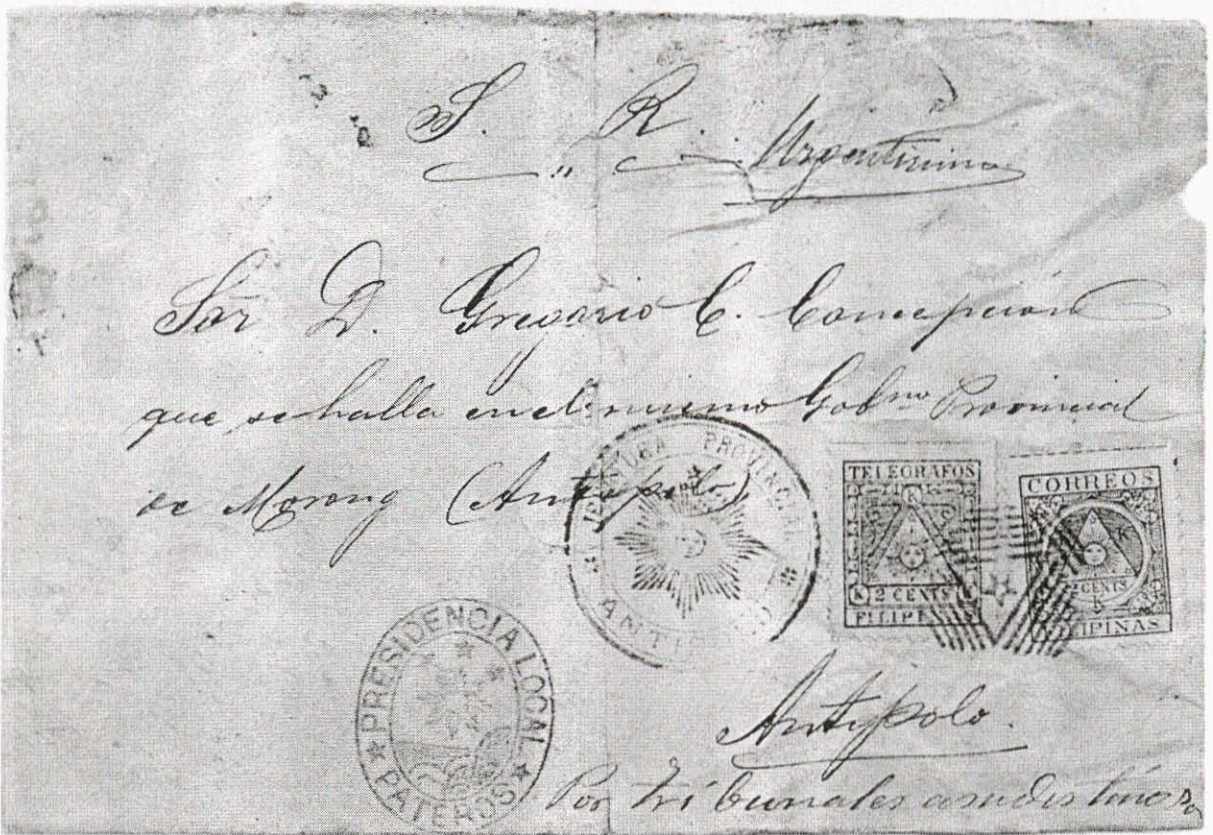 S. R. Urgentísimo
Sor D. Gregorio C. Concepción
que se halla en el mismo Gobno Provincial
de Morong (Antipolo)
JEFATURA PROVINCIAL
ANTIPOLO
TELEGRAFOS
K
K 2 CENTS K
FILIPINAS
CORREOS
2 CENTS
FILIPINAS
PRESIDENCIA LOCAL
PATEROS
Antipolo.
Por tribunales a su destino